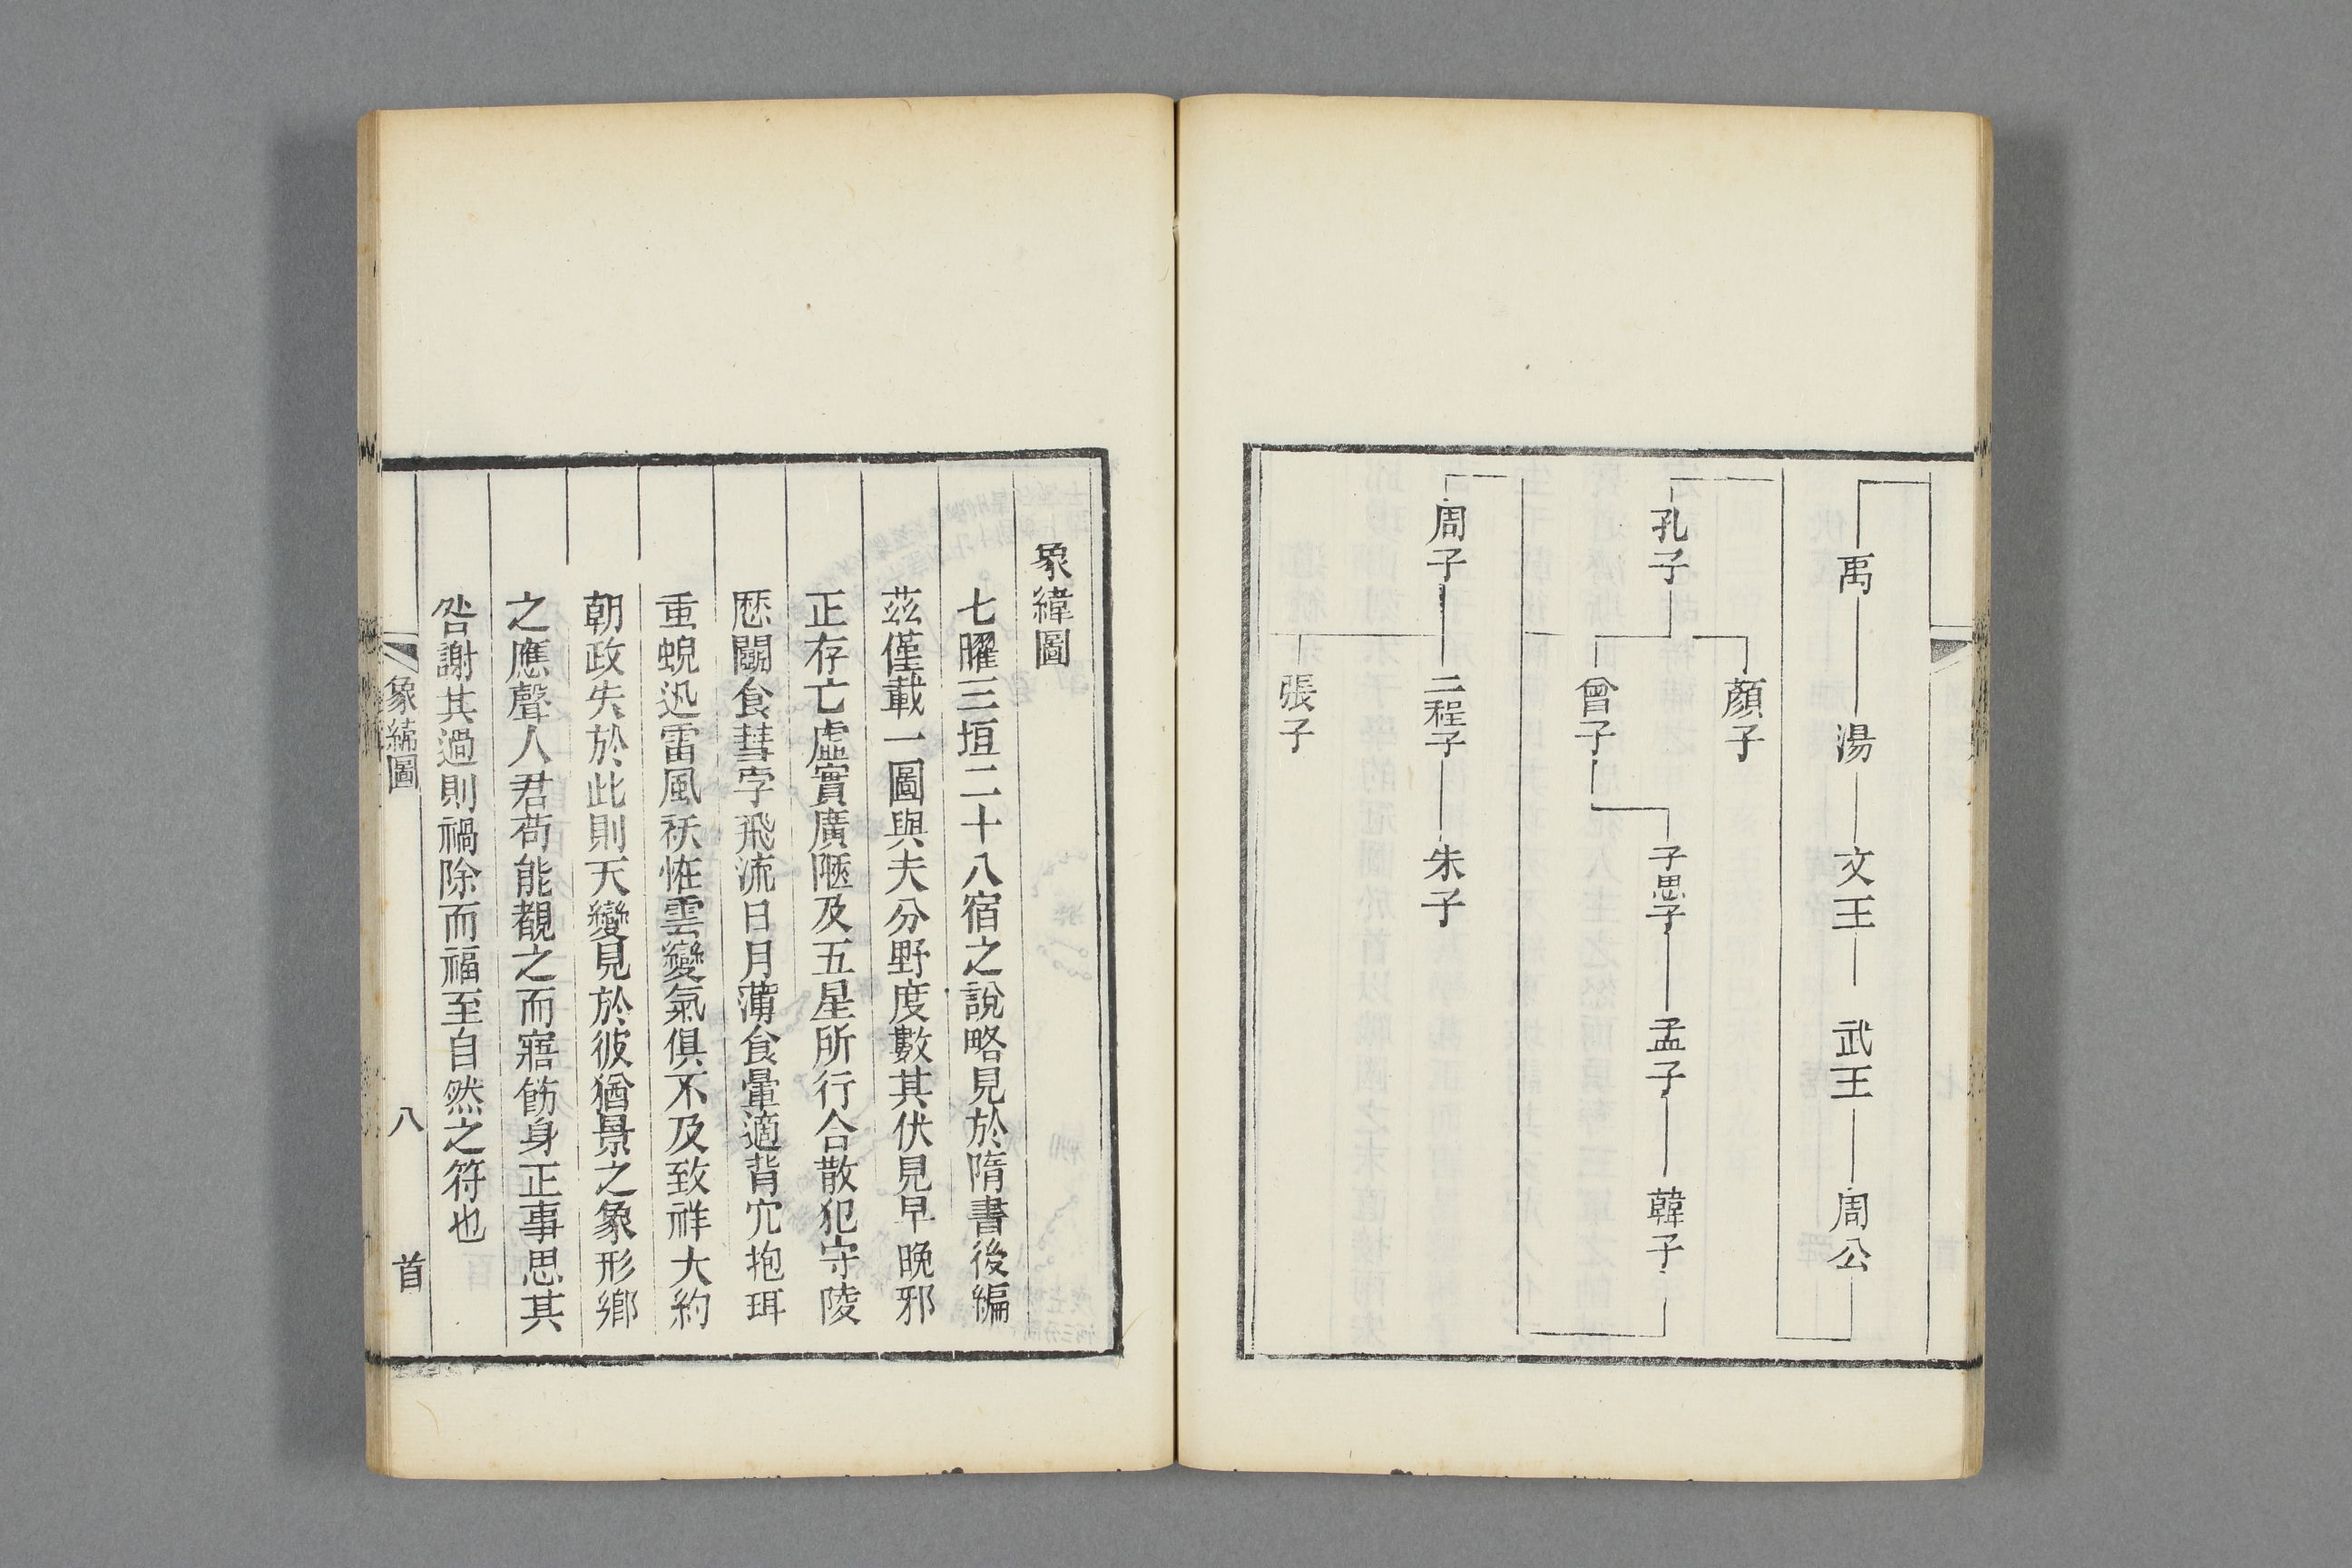 禹 湯 文王 武王 周公
顏子
孔子
子思子 孟子 韓子
曾子
周子 二程子 朱子
張子
象緯圖
七曜三垣二十八宿之說略見於隋書後編
茲僅載一圖與夫分野度數其伏見早晚邪
正存亡虛實廣陿及五星所行合散犯守陵
歴鬬食彗孛飛流日月薄食暈適背穴抱珥
重蜺迅雷風祅恠雲變氣俱不及致祥大約
朝政失於此則天變見於彼猶景之象形鄉
之應聲人君苟能覩之而寤飭身正事思其
咎謝其過則禍除而福至自然之符也
象緯圖 八 首